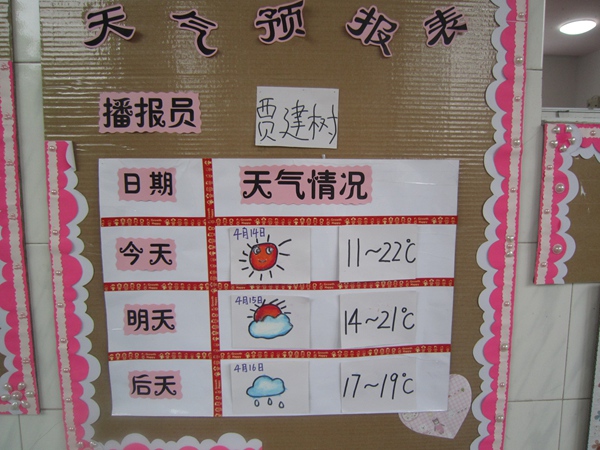 天气预报表
播报员 贾建树
日期 天气情况
今天 4月14日 11~22℃
明天 4月15日 14~21℃
后天 4月16日 17~19℃